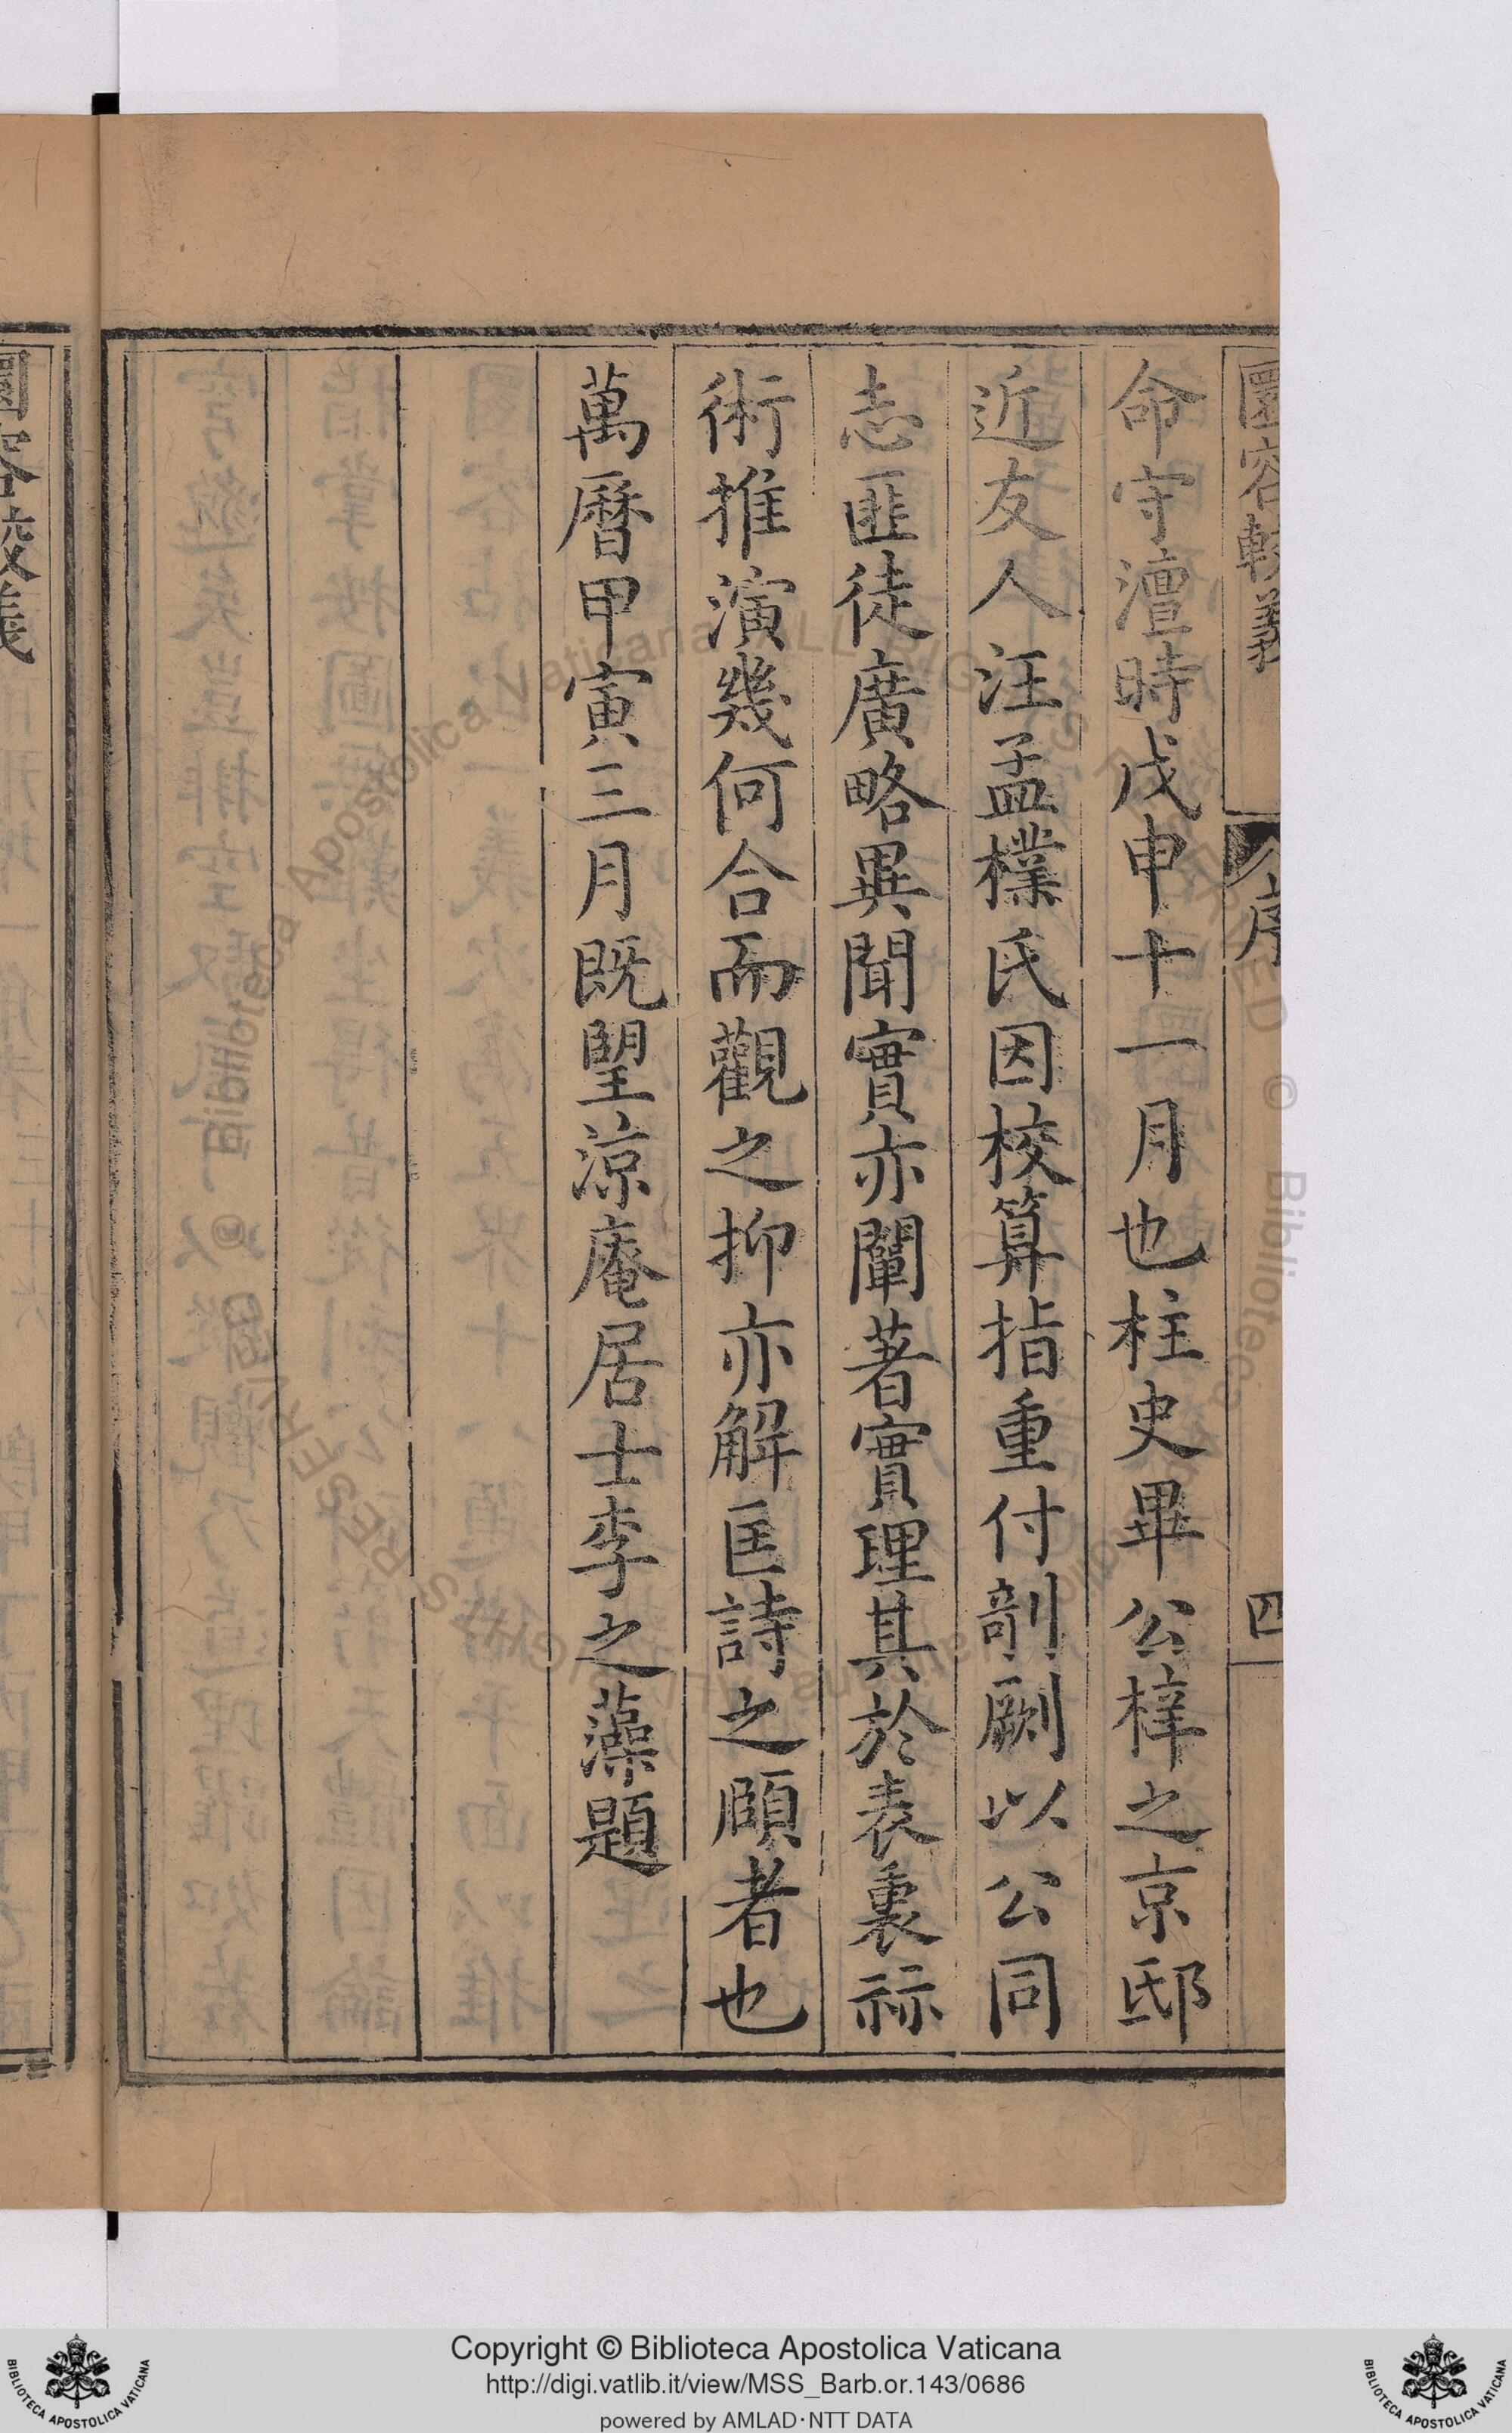 圜容較義
序
四
命守澶時戊申十一月也柱史畢公梓之京邸
近友人汪孟樸氏因校算指重付剞劂以公同
志匪徒廣略異聞實亦闡著實理其於表裏祘
術推演幾何合而觀之抑亦解匡詩之頤者也
萬曆甲寅三月既望涼庵居士李之藻題
圜容較義
Copyright © Biblioteca Apostolica Vaticana
http://digi.vatlib.it/view/MSS_Barb.or.143/0686
powered by AMLAD·NTT DATA
BIBLIOTECA APOSTOLICA VATICANA
BIBLIOTECA APOSTOLICA VATICANA